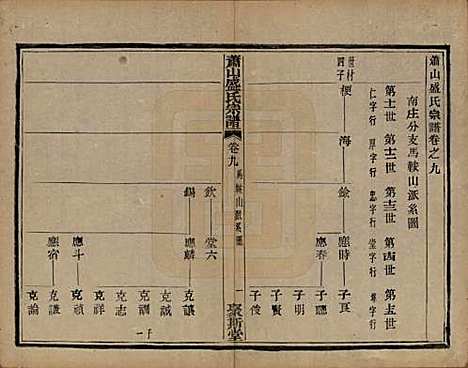 蕭山盛氏宗譜卷之九
南庄分支馬鞍山派系圖
第十一世 第十二世 第十三世 第十四世 第十五世
仁字行 厚字行 忠字行 堂字行 尊字行
梗 海 餘 應時 子良
四子
應春 子聽
子明
子賢
子俊
蕭山盛氏宗譜
卷九
馬鞍山派系圖
一
聚斯堂
欽 堂六
錫 應麟 克讓
克誠
克志
克祥
應斗 克禎
應宿 克論